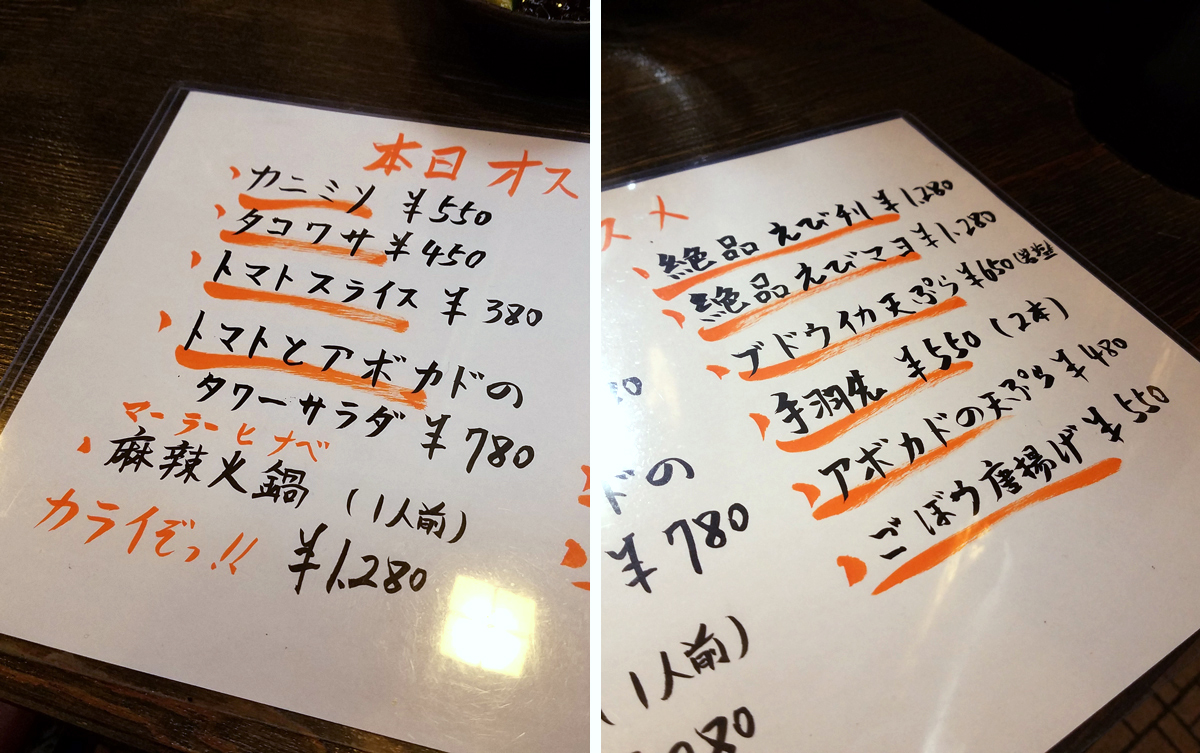 本日オス
カニミソ ¥550
タコワサ ¥450
トマトスライス ¥380
トマトとアボカドの
タワーサラダ ¥780
マーラーヒナベ
麻辣火鍋 (1人前)
カライぞっ!! ¥1,280
スメ
絶品えびチリ ¥1,280
絶品えびマヨ ¥1,280
ブドウイカ天ぷら ¥650
手羽先 ¥550 (2本)
アボカドの天ぷら ¥480
ごぼう唐揚げ ¥550
ドの
¥780
(1人前)
280